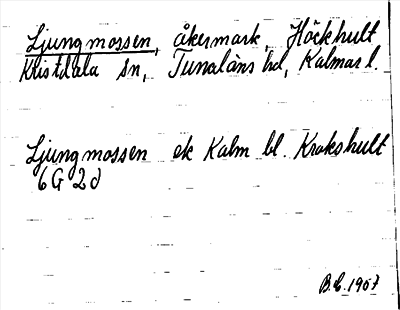 Ljungmossen, åkermark, Höckhult
Kristdala sn, Tunaläns hd, Kalmar l.
Ljungmossen ek Kalm bl. Krokshult
6G 2d
B.E. 1967